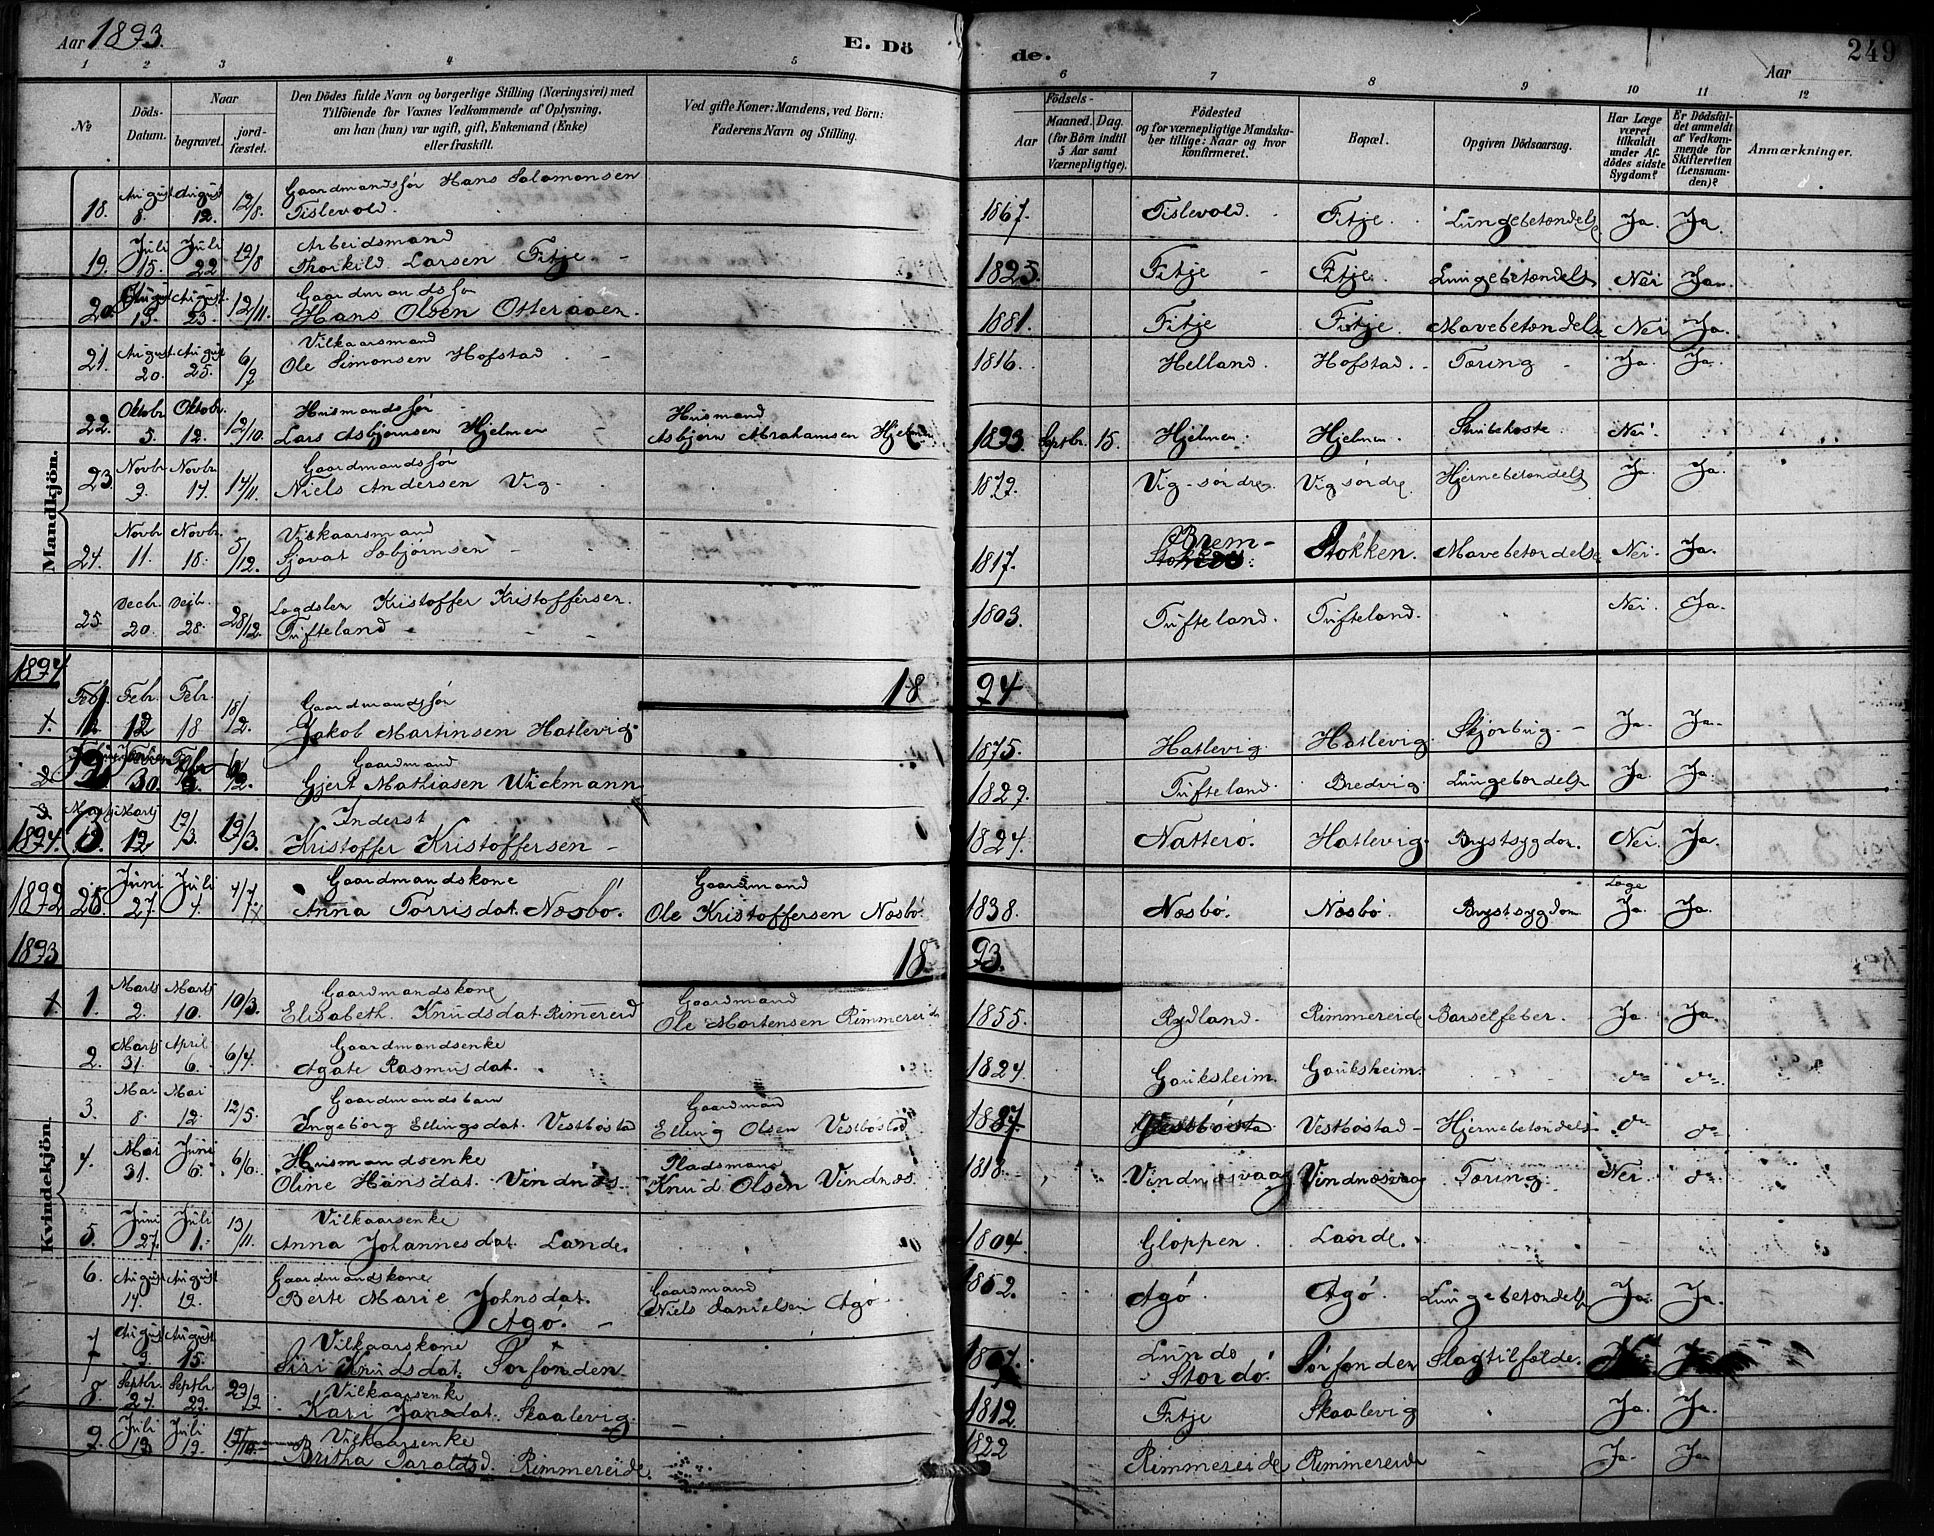 Aar 1893.
E. Dö
de.
249
Aar
1 2 3 4 5 6 7 8 9 10 11 12
№
Döds-Datum.
Naar
begravet.
jord-fæstet.
Den Dödes fulde Navn og borgerlige Stilling (Næringsvei) med
Tilföiende for Voxnes Vedkommende af Oplysning,
om han (hun) var ugift, gift, Enkemand (Enke)
eller fraskilt.
Ved gifte Koner: Mandens, ved Börn:
Faderens Navn og Stilling.
Födsels-
Aar
Maaned. Dag.
(for Börn indtil
5 Aar samt
Værnepligtige).
Födested
og for værnepligtige Mandska-
ber tillige: Naar og hvor
konfirmeret.
Bopæl.
Opgiven Dödsaarsag.
Har Læge
været
tilkaldt
under Af-
dödes sidste
Sygdom?
Er Dödsfal-
det anmeldt
af Vedkom-
mende for
Skifteretten
(Lensman-
den)?
Anmærkninger.
Mandkjön.
18. August 8. August 12. 12/8. Gaardmandssør Hans Salomonsen Tislevold. 1867. Tislevold. Fitje. Lungebetændelse Ja. Ja.
19. Juli 15. Juli 22 Arbeidsmand Thorkild Larsen Fitje 1825. Fitje Fitje. Lungebetændels Nei Ja.
20. August 13. August. 23. 12/11. Gaardmandssør Hans Olsen Otteraaen. 1881. Fitje Fitje. Mavebetændelse Nei Ja.
21. August 20. August 25. 6/9 Vilkaarsmand Ole Simonsen Hofstad 1816. Helland. Hofstad. Tæring Ja. Ja.
22. Oktobr 5. Oktobr. 12. 12/10. Husmandssør Lars Asbjørnsen Hjelmen Husmand Asbjørn Abrahamsen Hjelmen 1893. Septbr. 15. Hjelmen. Hjelmen. Nei.
23. Novbr 9. Novbr. 14. 14/11. Gaardmandssør Niels Andersen Vig. 1879. Vig søndre. Vig søndre. Hjernebetændels Ja. Ja.
24. Novbr 11. Novbr. 18. 5/12. Vilkaarsmand Sjovat Sæbjørnsen 1817. Brem- Stokken. Mavebetændelse Nei. Ja.
25. Decbr. 20. Decbr. 28. 28/12. Lægdslem Kristoffer Kristoffersen. Tufteland 1803. Tufteland. Tufteland. Nei. Ja.
1894 1894
1. 12 Febr. 12 Febr. 18 18/2. Gaardmandssør Jakob Martinsen Hatlevig. 1875. Hatlevig. Hatlevig. Skjørbug. Ja. Ja.
2 30. Febr. Gaardmand Gjert Mathiasen Wickmann 1829. Tufteland. Bredvig. Lungebetændelse Ja. Ja.
1894. 3. Marts 12 19/3. 19/3. Inderst Kristoffer Kristoffersen 1824. Natterø. Hatlevig. Brystsygdom. Nei. Ja.
1892 25. Juni 27. Juli 4. 4/7. Gaardmandskone Anna Torrisdat. Næsbø. Gaardmand Ole Kristoffersen Næsbø. 1838. Næsbø. Næsbø. Brystsygdom Læge Ja. Ja.
1893 1893.
Kvindekjön.
1. Marts 2. Marts 10. 10/3. Gaardmandskone Elisabeth. Knudsdat. Rimmereid Gaardmand Ole Mortensen Rimmereide 1855. Rydland. Rimmereide Barselfeber. Ja. Ja.
2. Marts 31. April 6. 6/4. Gaardmandsenke Agate Rasmusdat. 1824. Gauksheim. Gauksheim. do do
3. Mai 8. Mai 12. 12/5. Gaardmandsbarn Ingeborg Ellingsdat. Vestbøstad Gaardmand Elling Olsen Vestbøstad 1887 Vestbøstad Vestbøstad Hjernebetændels do do
4. Mai 31. Juni 6. 6/6. Husmandsenke Oline Hansdat. Vindnæs. Pladsmand Knud Olsen Vindnæs 1818. Vindnæsvaag Vindnæsvaag Tæring. Nei do
5. Juni 27. Juli 1. 13/11. Vilkaarsenke Anna Johannesdat. Lande. 1804. Gloppen. Lande.
6. August 14. August 19. Gaardmandskone Berte Marie Johnsdat. Agø. Gaardmand Niels Danielsen Agø. 1852. Agø. Agø. Lungebetændelse Ja. Ja.
7 August 9. August 15. Vilkaarskone Siri Knudsdat. Sørfonden. Lunde Stordø. Sørfonden Slagtilfælde. Nei Ja
8. Septbr. Septbr. 29. 29/9. Vilkaarsenke Kari Jansdat. Skaalevig. 1812. Fitje Skaalevig Ja. Ja.
9. Juli 13 Juli 19. Vilkaarsenke Britha Haraldsd. Rimmereide. 1822 Rimmereide Rimmereide Ja. Ja.